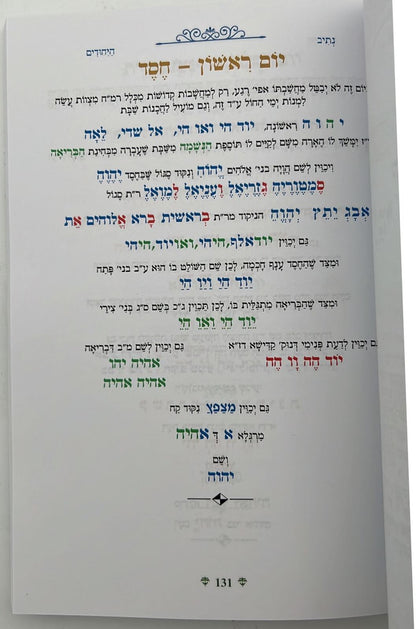 נתיב היהודים
יוֹם רִאשׁוֹן – חֶסֶד
יום זה לא יבטל מחשבתו אפי' רגע, רק למחשבות קדושות מכלל רמ"ח מצוות עשה
למנות ימי החול ע"ד זה, וגם מועיל להכנות שבת
י ה ו ה ראשונה, יוד הי ואו הי, אל שדי, לאה
ימשך לו הארה משם לקיים לו תוספת הנשמה משבת שעברה מבחינת הבריאה
ויכוין לשם הויה בני' אלהים יהוה ונקוד סגול שבחסד יהוה
סמטוריה גזריאל וענאל למואל ר"ת סגול
אבג יתץ יהוה הניקוד מר"ת בראשית ברא אלוהים את
גם יכוין יודאלף,היהי,ואויוד,היהי
ומצד שהחסד ענף חכמה, לכן שם השולט בו הוא ע"ב בני' פתח
יוד הי ויו הי
ומצד שהבריאה מתגלית בו, לכן תכוין ג"כ בשם ס"ג בני' צירי
יוד הי ואו הי
גם יכוין לדעת פנימי דנוק' קדישא דז"א
יוד הה וו הה
גם יכוין לשם מ"ב דבריאה
אהיה יהו
אהיה אהיה
גם יכוין מצפצ נקוד קח
מרגלא א ד אהיה
ושם
יהוה
131